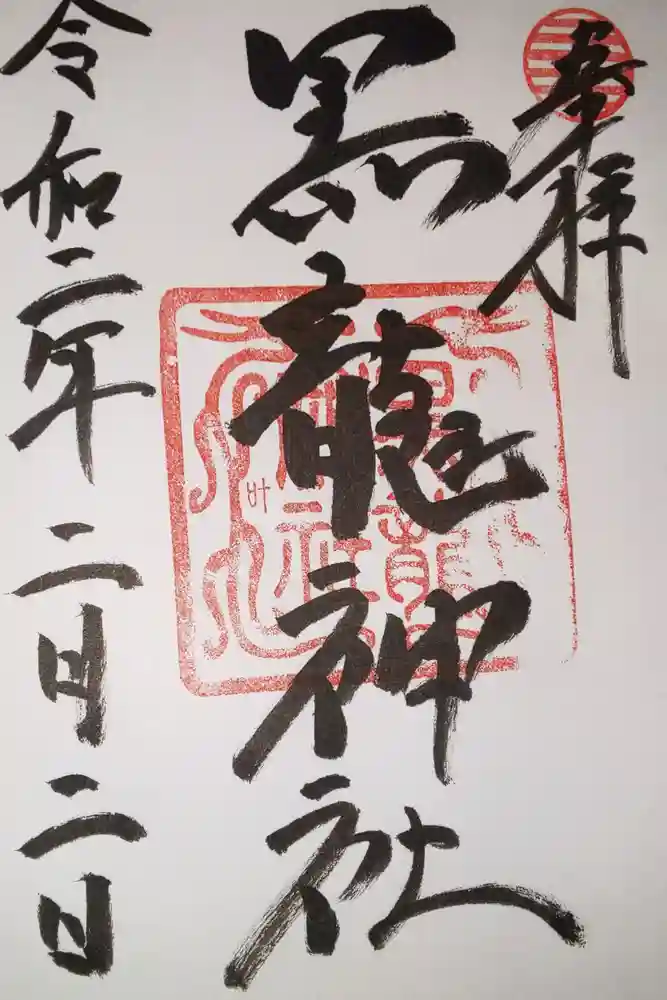 奉拝
黒龍神社
令和二年二月二日
叶